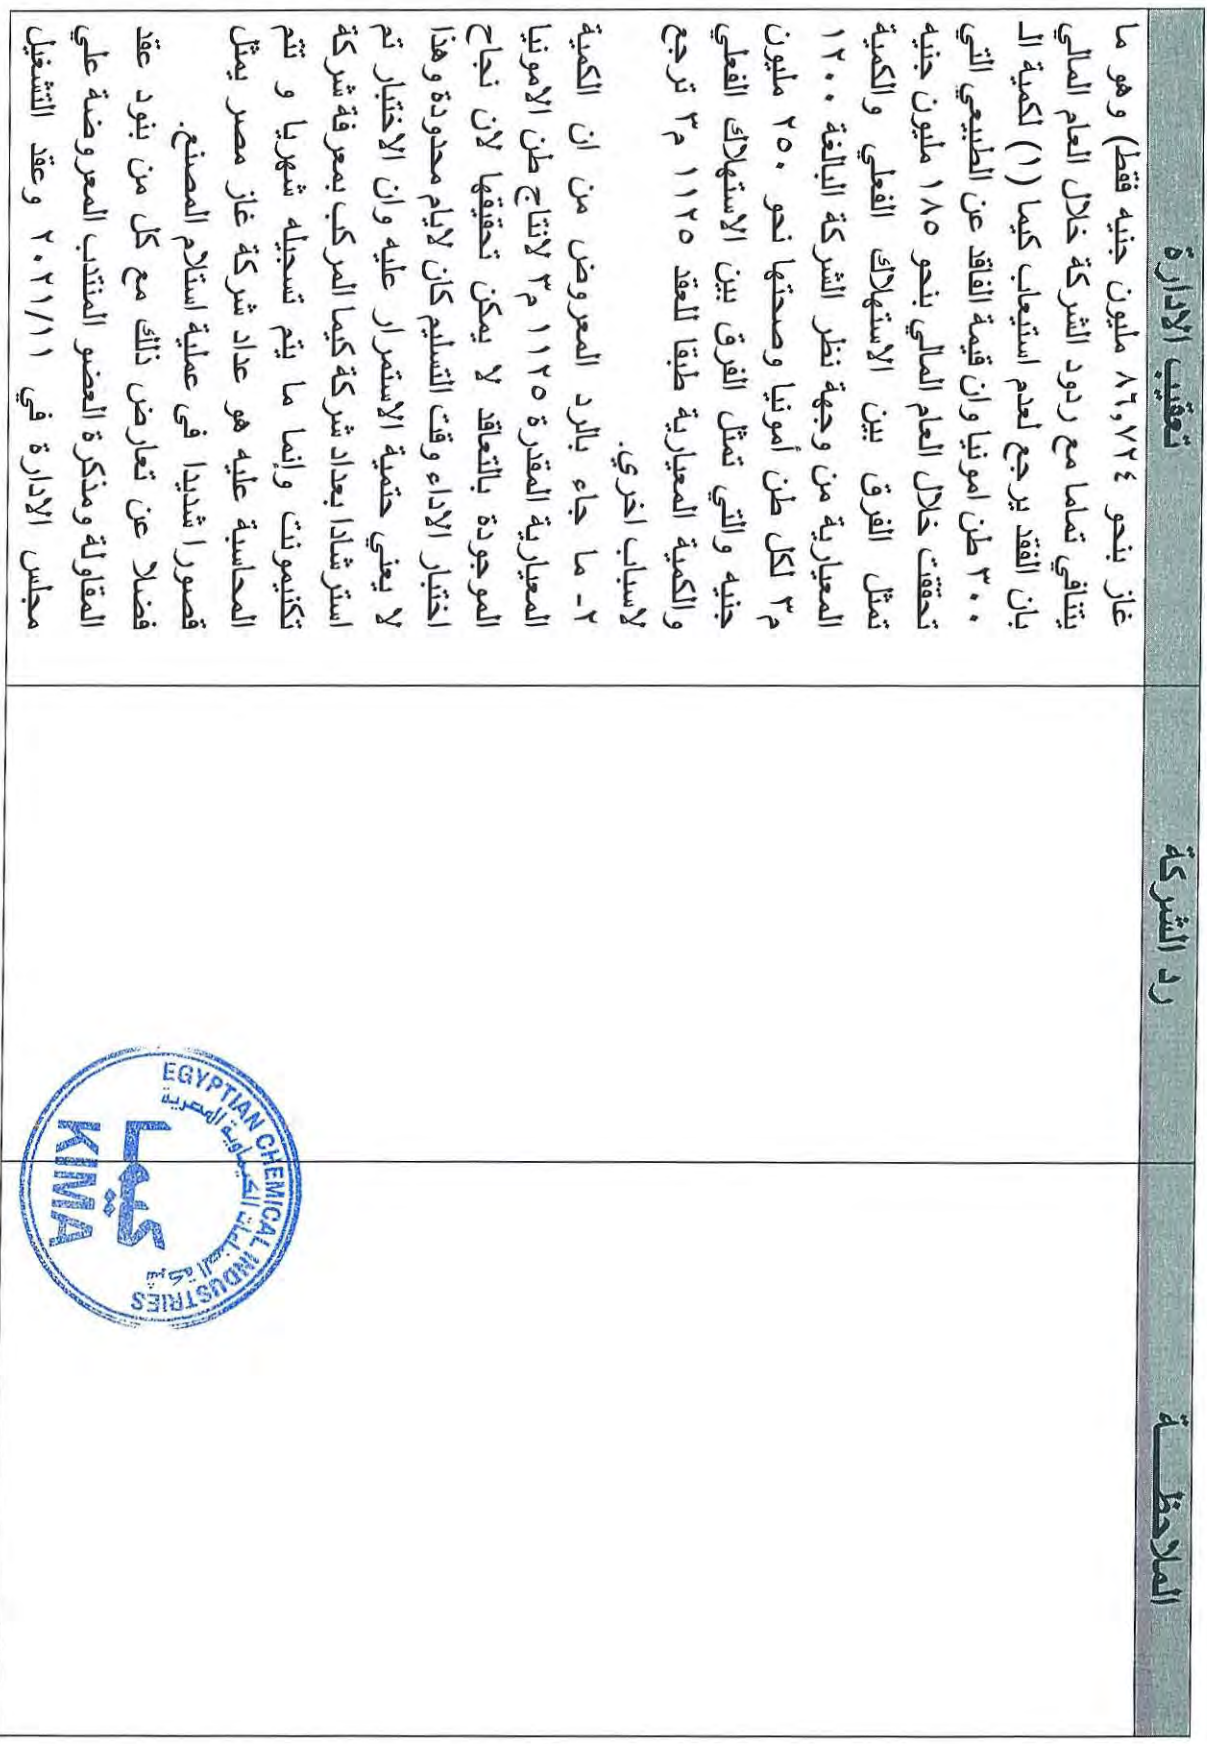 الملاحظـــة
رد الشركة
تعقيب الادارة
غاز بنحو ٨٦,٧٢٤ مليون جنيه فقط) وهو ما
يتنافي تماما مع ردود الشركة خلال العام المالي
بان الفقد يرجع لعدم استيعاب كيما (١) لكمية الـ
٣٠٠ طن امونيا وان قيمة الفاقد عن الطبيعي التي
تحققت خلال العام المالي بنحو ١٨٥ مليون جنيه
تمثل الفرق بين الاستهلاك الفعلي والكمية
المعيارية من وجهة نظر الشركة البالغة ١٢٠٠
م٣ لكل طن أمونيا وصحتها نحو ٢٥٠ مليون
جنيه والتي تمثل الفرق بين الاستهلاك الفعلي
والكمية المعيارية طبقا للعقد ١١٢٥ م٣ ترجع
لاسباب اخري.
٢- ما جاء بالرد المعروض من ان الكمية
المعيارية المقدرة ١١٢٥ م٣ لانتاج طن الامونيا
الموجودة بالتعاقد لا يمكن تحقيقها لان نجاح
اختبار الاداء وقت التسليم كان لايام محدودة وهذا
لا يعني حتمية الاستمرار عليه وان الاختبار تم
استرشادا بعداد شركة كيما المركب بمعرفة شركة
تكنيمونت وإنما ما يتم تسجيله شهريا و تتم
المحاسبة عليه هو عداد شركة غاز مصر يمثل
قصورا شديدا في عملية استلام المصنع.
فضلا عن تعارض ذلك مع كل من بنود عقد
المقاولة ومذكرة العضو المنتدب المعروضة علي
مجلس الادارة في ٢٠٢١/١١ وعقد التشغيل
EGYPTIAN CHEMICAL INDUSTRIES
شركة الصناعات الكيماوية المصرية
كيما
KIMA